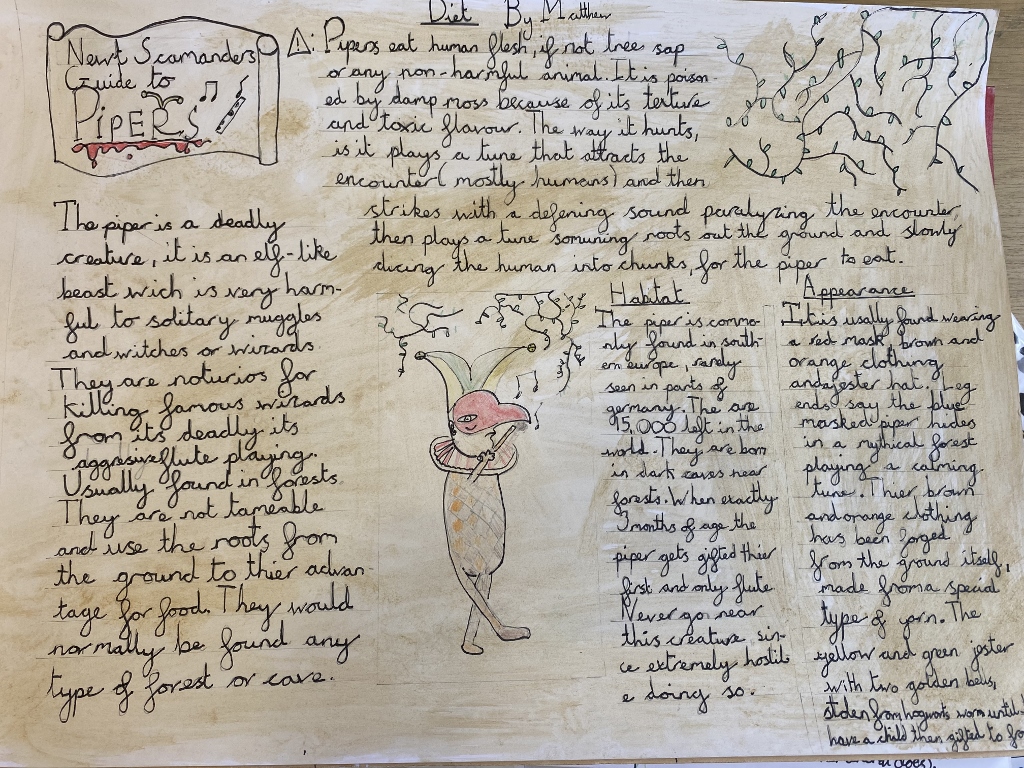 Newt Scamanders
Guide to
PiPERS
Diet By Matthew
⚠: Pipers eat human flesh, if not tree sap
or any non-harmful animal. It is poison-
ed by damp moss because of its texture
and toxic flavour. The way it hunts,
is it plays a tune that attracts the
encounter (mostly humans) and then
strikes with a defening sound paralyzing the encounter,
then plays a tune somuning roots out the ground and slowly
dicing the human into chunks, for the piper to eat.
The piper is a deadly
creature, it is an elf-like
beast wich is very harm-
ful to solitary muggles
and witches or wizards.
They are noturios for
killing famous wizards
from its deadly its
aggresive flute playing.
Usually found in forests
They are not tameable
and use the roots from
the ground to thier advan-
tage for food. They would
normally be found any
type of forest or cave.
Habitat
The piper is commo-
nly found in south-
ern europe, rarely
seen in parts of
germany. The are
95,000 left in the
world. They are born
in dark caves near
forests. When exactly
3 months of age the
piper gets gifted thier
first and only flute
Never go near
this creature sin-
ce extremely hostil
e doing so.
Appearance
It is usally found wearing
a red mask, brown and
orange clothing
and a jester hat. Leg-
ends say the blue
masked piper hides
in a mythical forest
playing a calming
tune. Thier brown
and orange clothing
has been forged
from the ground itself,
made from a special
type of yarn. The
yellow and green jester
with two golden bells,
stolen from hogwarts worn until
have a child then gifted to